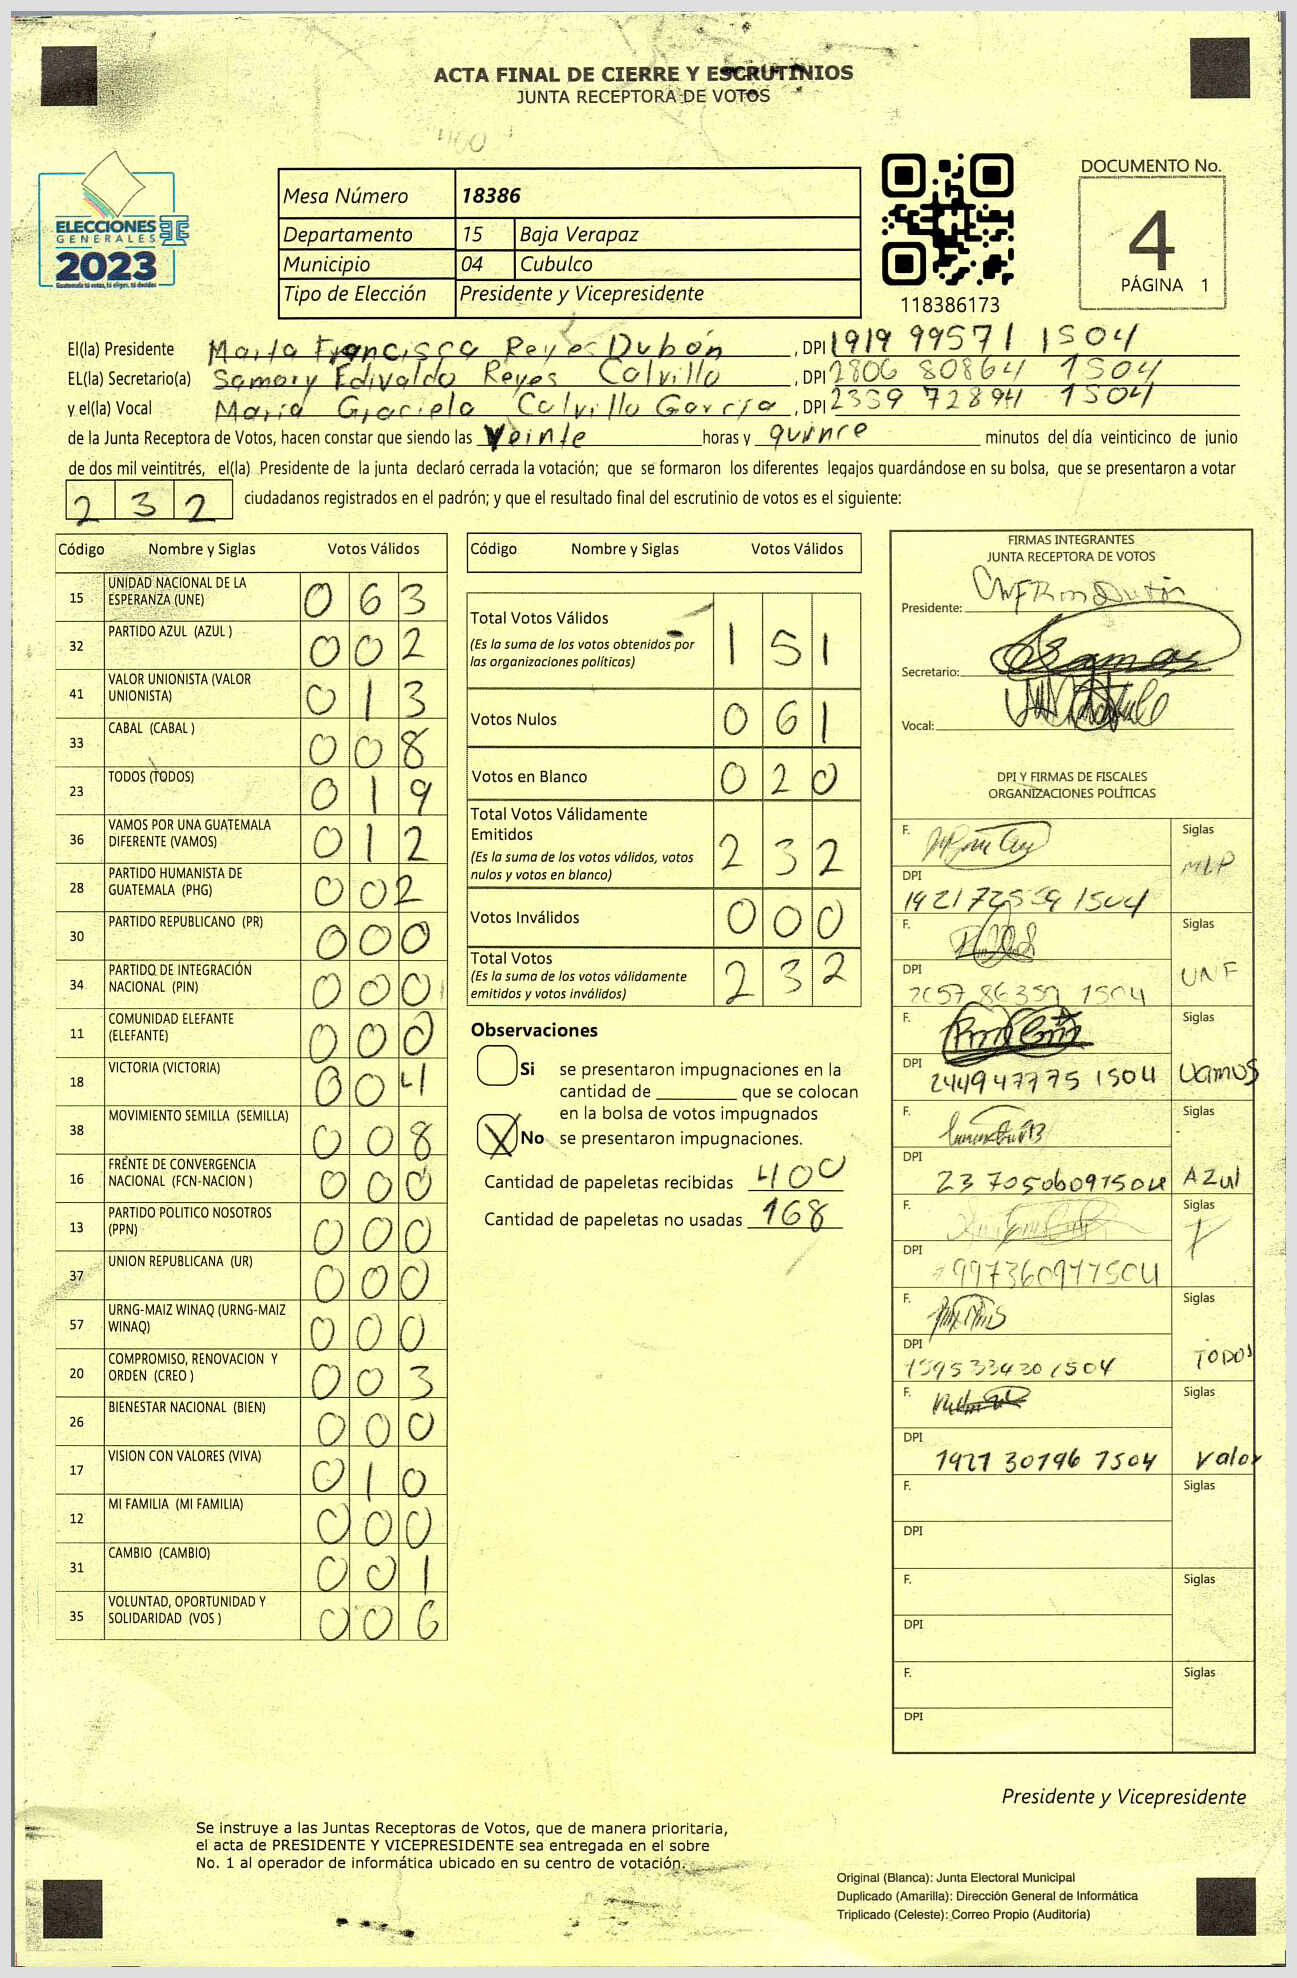 ACTA FINAL DE CIERRE Y ESCRUTINIOS
JUNTA RECEPTORA DE VOTOS
400
ELECCIONES
GENERALES
2023
Guatemala tú votas, tú eliges, tú decides
Mesa Número 18386
Departamento 15 Baja Verapaz
Municipio 04 Cubulco
Tipo de Elección Presidente y Vicepresidente
118386173
DOCUMENTO No.
4
PÁGINA 1
El(la) Presidente Marta Francisca Reyes Dubón, DPI 1919 99571 1504
EL(la) Secretario(a) Samory Edivaldo Reyes Calvillo, DPI 2806 80864 1504
y el(la) Vocal Maria Graciela Calvillo García, DPI 2359 72894 1504
de la Junta Receptora de Votos, hacen constar que siendo las veinte horas y quince minutos del día veinticinco de junio
de dos mil veintitrés, el(la) Presidente de la junta declaró cerrada la votación; que se formaron los diferentes legajos guardándose en su bolsa, que se presentaron a votar
232 ciudadanos registrados en el padrón; y que el resultado final del escrutinio de votos es el siguiente:
Código Nombre y Siglas Votos Válidos
15 UNIDAD NACIONAL DE LA ESPERANZA (UNE) 063
32 PARTIDO AZUL (AZUL ) 002
41 VALOR UNIONISTA (VALOR UNIONISTA) 013
33 CABAL (CABAL ) 008
23 TODOS (TODOS) 019
36 VAMOS POR UNA GUATEMALA DIFERENTE (VAMOS) 012
28 PARTIDO HUMANISTA DE GUATEMALA (PHG) 002
30 PARTIDO REPUBLICANO (PR) 000
34 PARTIDO DE INTEGRACIÓN NACIONAL (PIN) 000
11 COMUNIDAD ELEFANTE (ELEFANTE) 000
18 VICTORIA (VICTORIA) 004
38 MOVIMIENTO SEMILLA (SEMILLA) 008
16 FRENTE DE CONVERGENCIA NACIONAL (FCN-NACION ) 000
13 PARTIDO POLITICO NOSOTROS (PPN) 000
37 UNION REPUBLICANA (UR) 000
57 URNG-MAIZ WINAQ (URNG-MAIZ WINAQ) 000
20 COMPROMISO, RENOVACION Y ORDEN (CREO ) 003
26 BIENESTAR NACIONAL (BIEN) 000
17 VISION CON VALORES (VIVA) 010
12 MI FAMILIA (MI FAMILIA) 000
31 CAMBIO (CAMBIO) 001
35 VOLUNTAD, OPORTUNIDAD Y SOLIDARIDAD (VOS ) 006
Código Nombre y Siglas Votos Válidos
Total Votos Válidos 151
(Es la suma de los votos obtenidos por
las organizaciones políticas)
Votos Nulos 061
Votos en Blanco 020
Total Votos Válidamente
Emitidos 232
(Es la suma de los votos válidos, votos
nulos y votos en blanco)
Votos Inválidos 000
Total Votos 232
(Es la suma de los votos válidamente
emitidos y votos inválidos)
Observaciones
Si se presentaron impugnaciones en la
cantidad de ________ que se colocan
en la bolsa de votos impugnados
X No se presentaron impugnaciones.
Cantidad de papeletas recibidas 400
Cantidad de papeletas no usadas 168
FIRMAS INTEGRANTES
JUNTA RECEPTORA DE VOTOS
Presidente:
Secretario:
Vocal:
DPI Y FIRMAS DE FISCALES
ORGANIZACIONES POLÍTICAS
F. Siglas
MLP
DPI
F. Siglas
UNE
DPI
F. Siglas
DPI 2449 47775 1504 Vamos
F. Siglas
DPI 23 7050609 1504 Azul
F. Siglas
DPI
F. Siglas
TODOS
DPI 1595334301504
F. Siglas
DPI 1921 30796 1504 Valor
F. Siglas
DPI
F. Siglas
DPI
F. Siglas
DPI
Presidente y Vicepresidente
Se instruye a las Juntas Receptoras de Votos, que de manera prioritaria,
el acta de PRESIDENTE Y VICEPRESIDENTE sea entregada en el sobre
No. 1 al operador de informática ubicado en su centro de votación.
Original (Blanca): Junta Electoral Municipal
Duplicado (Amarilla): Dirección General de Informática
Triplicado (Celeste): Correo Propio (Auditoría)